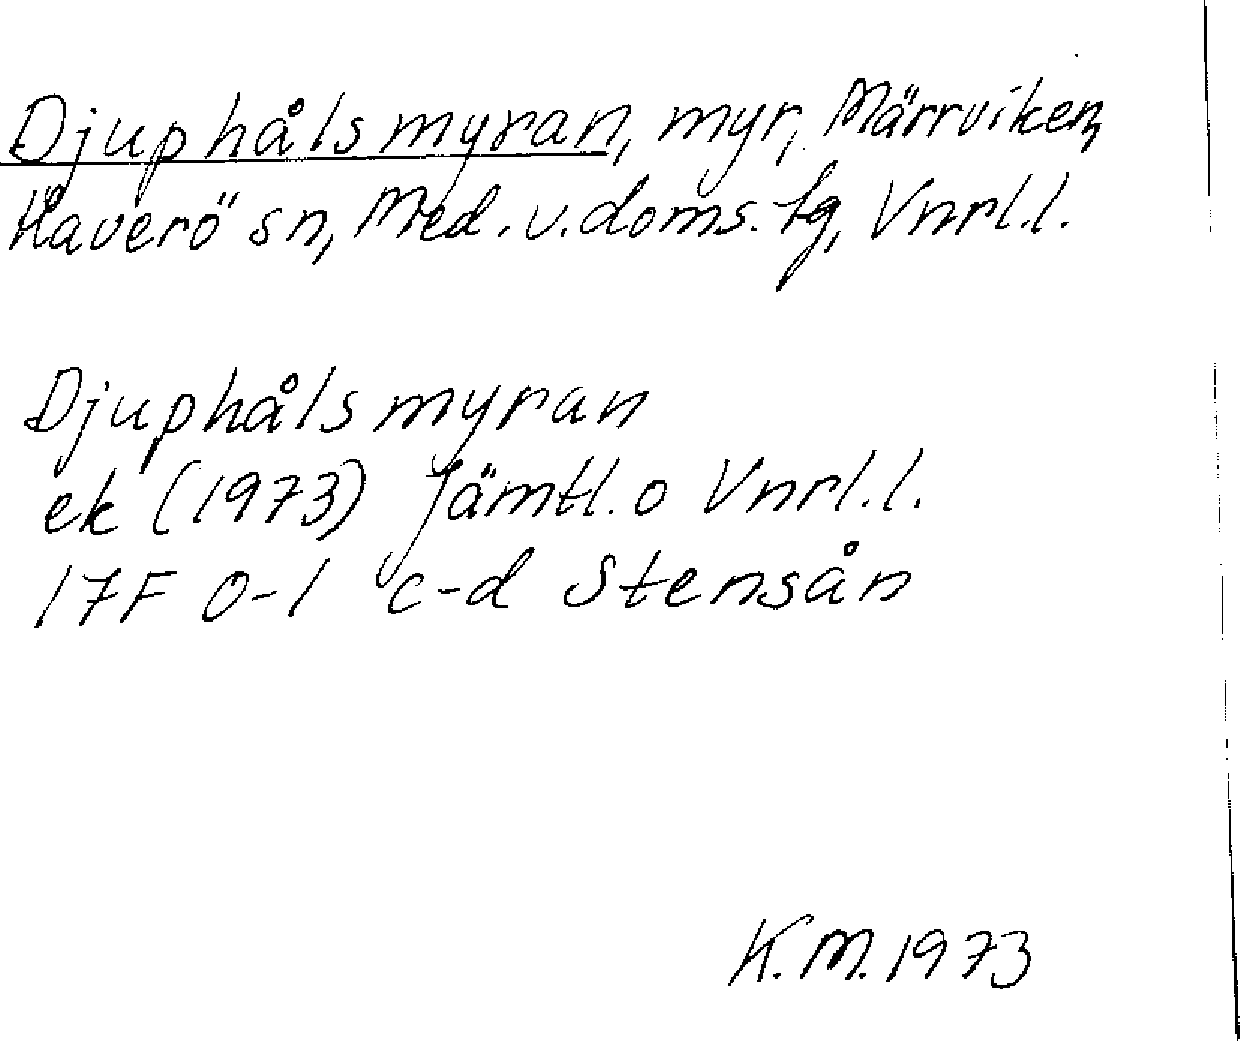 Djuphålsmyran, myr, Märrviken,
Haverö sn, Med. v. doms. tg, Vnrl.l.
Djuphålsmyran
ek (1973) Jämtl. o Vnrl.l.
17F 0-1 c-d Stensån
K.M. 1973